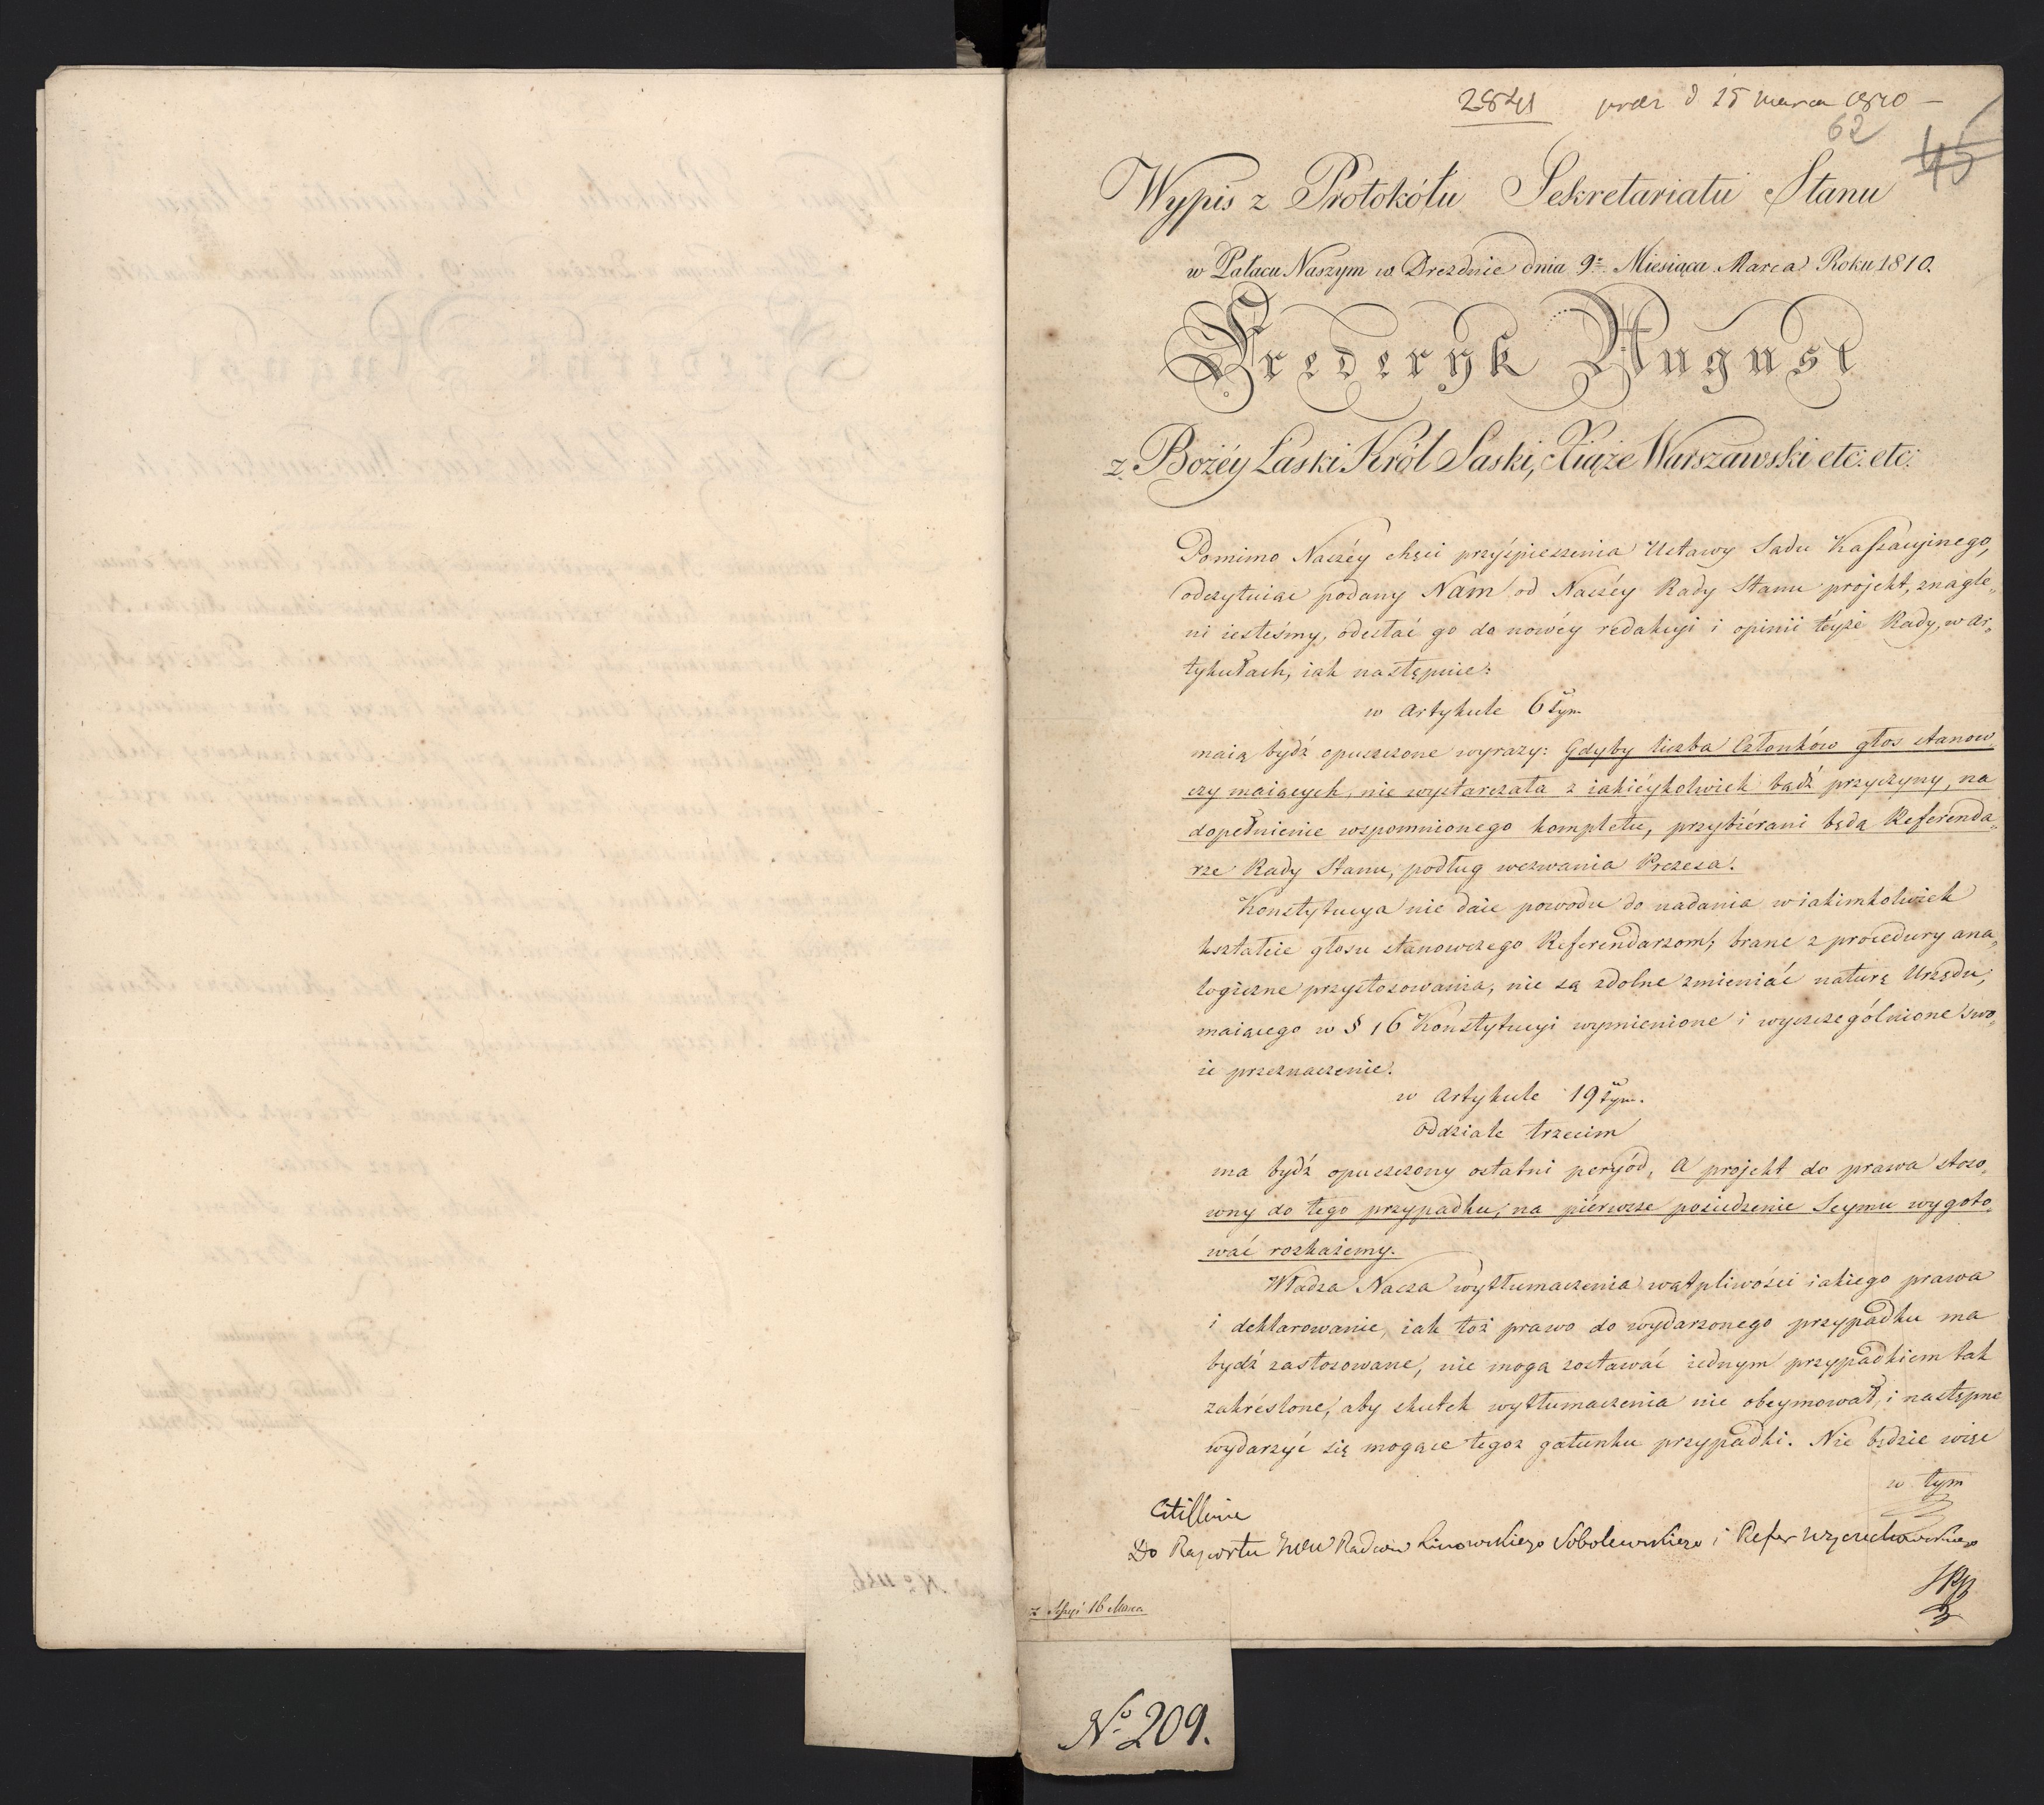 2841 praes d 15 Marca 1810 —
62
45
Wypis z Protokółu Sekretariatu Stanu
w Pałacu Naszym w Dreznie dnia 9º Miesiąca Marca Roku 1810.
Fryderyk August
z Bożéy Łaski Król Saski, Xiąże Warszawski etc: etc:
Pomimo Naszéy chęci przyśpieszenia Ustawy Sądu Kassacyinego,
odczytuiąc podany Nam od Naszéy Rady Stanu projekt, znagle„
ni iesteśmy, odesłać go do nowéy redakcyi i opinii téyże Rady, w ar„
tykułach, iak następuie:
w Artykule 6tym
maią bydź opuszczone wyrazy: Gdyby liczba Członków głos stanow„
czy maiących, nie wystarczała z iakiéykolwiek bądź przyczyny, na
dopełnienie wspomnionego kompletu, przybiérani będą Referenda„
rze Rady Stanu, podług wezwania Prezesa.
Konstytucya nie daie powodu do nadania w iakimkolwiek
kształcie głosu stanowczego Referendarzom; brane z procedury ana„
logiczne przystosowania, nie są zdolne zmieniać naturę Urzędu,
maiącego w § 16 Konstytucyi wymienione i wyszczególnione swo„
ie przeznaczenie.
w Artykule 19tym.
Oddziale trzecim
ma bydź opuszczony ostatni peryód, A projekt do prawa stoso„
wny do tego przypadku, na piérwsze posiedzenie Seymu wygoto„
wać rozkażemy.
Władza Nasza wytłumaczenia wątpliwości iakiego prawa
i deklarowanie, iak toż prawo do wydarzonego przypadku ma
bydź zastosowane, nie mogą zostawać iednym przypadkiem tak
zakréślone, aby skutek wytłumaczenia nie obeymował, i następne
wydarzyć się mogące tegoż gatunku przypadki. Nie będzie więc
w tym
Citissime
Do Raportu Radców Linowskiego Sobolewskiego i Refer Wyczechowskiego
z 16 Marca
Nº 209.